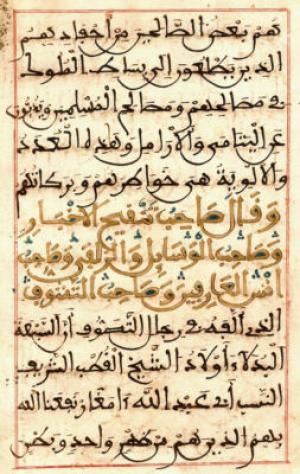 هم بعض الصالحين من أحفادهم
الذين يطلعون إلى بساط الملوك
في مصالحهم ومصالح المسلمين
عن اليتامى والأرامل وهذه العدد
والألوية هي خواطرهم وبركاتهم
وقال صاحب تنقيح الأخبار
وصاحب الوسايل والزلفى وصاحب
أنس العارفين وصاحب التصوف
الذي ألفه في رجال التصوف أن السبعة
البدلاء أولاد الشيخ القطب الشريف
النسب أبي عبد الله أمغار نفعنا الله
بهم الذين هم من ظهر واحد وبطن